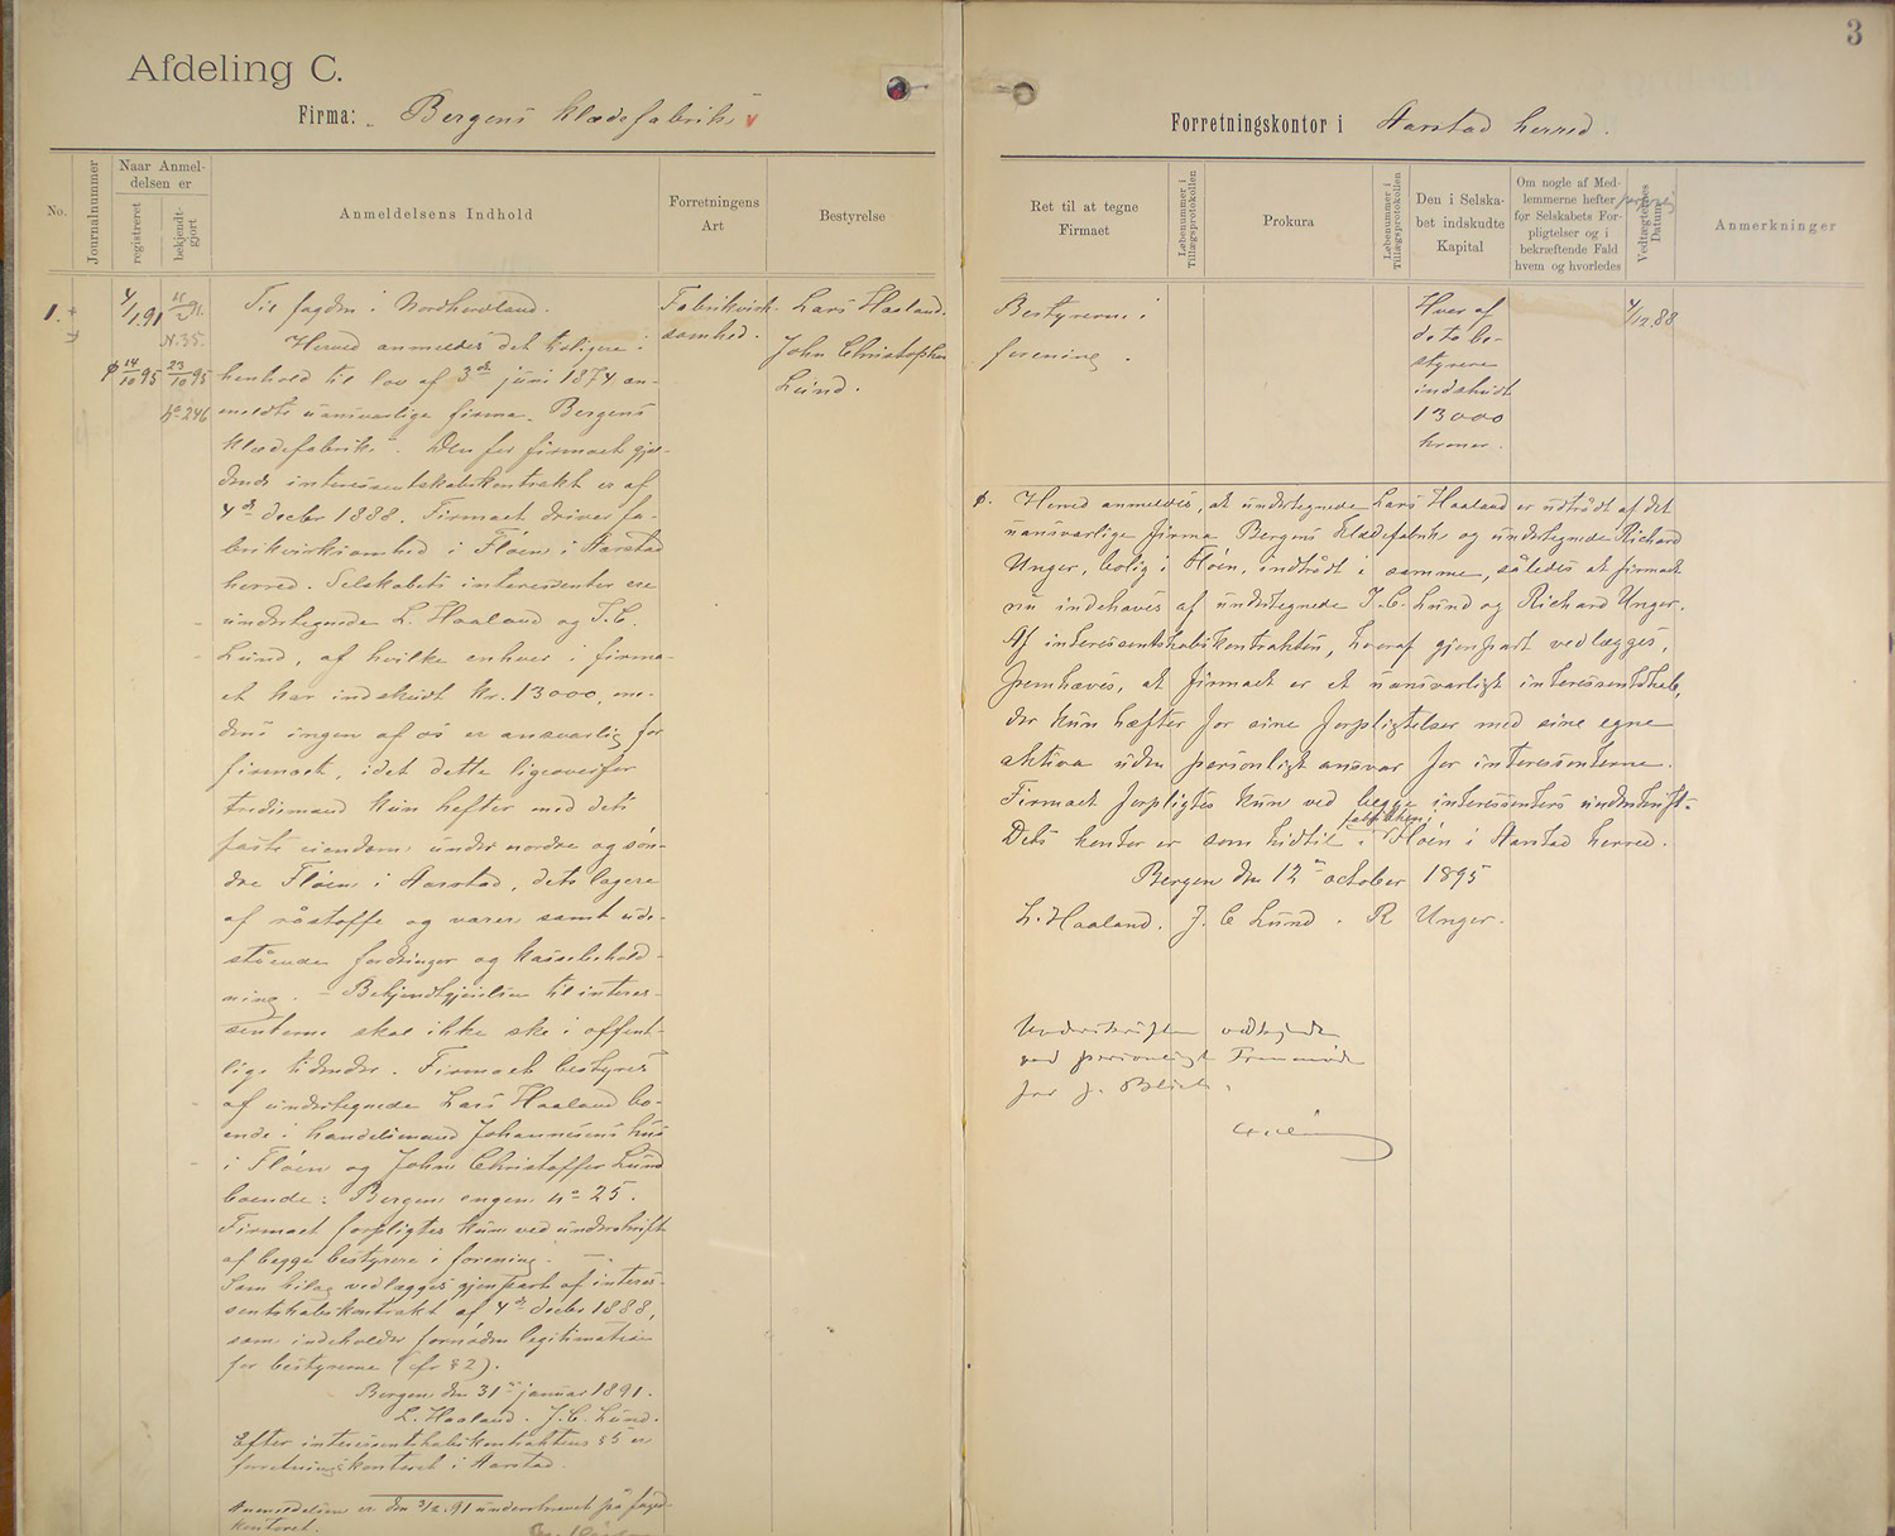 3
Afdeling C.
Firma: Bergens klædefabrik
Forretningskontor i Aarstad herred.
No.
Journalnummer
Naar Anmel-
delsen er
registreret
bekjendt-
gjort
Anmeldelsens Indhold
Forretningens
Art
Bestyrelse
Ret til at tegne
Firmaet
Løbenummer i
Tillægsprotokollen
Prokura
Løbenummer i
Tillægsprotokollen
Den i Selska-
bet indskudte
Kapital
Om nogle af Med-
lemmerne hefter
før Selskabets For-
pligtelser og i
bekræftende Fald
hvem og hvorledes
Vedtægternes
Datum
Anmerkninger
1.
N. 35.
14/10 95
23/10 95
No 246
Til fogden i Nordhordland.
Herved anmeldes det tidligere i
henhold til lov af 3die juni 1874 an-
meldte uansvarlige firma "Bergens
klædefabrik". Den for firmaet gjæl-
dende interessentskabskontrakt er af
4de decbr 1888. Firmaet driver fa-
brikvirksomhed i Fløen i Aarstad
herred. Selskabets interessenter ere
undertegnede L. Haaland og J. C.
Lund, af hvilke enhver i firma-
et har indskudt kr. 13000, me-
dens ingen af os er ansvarlig for
firmaet, idet dette ligeoverfor
trediemand kun hefter med dets
faste eiendom under nordre og søn-
dre Fløen i Aarstad, dets lagere
af råstoffe og varer samt ude-
stående fordringer og kassebehold-
ning. – Bekjendtgjørelser til interes-
senterne skal ikke ske i offent-
lige tidender. Firmaet bestyres
af undertegnede Lars Haaland bo-
ende i handelsmand Johannesens hus
i Fløen og John Christoffer Lund
boende: Bergen engen no 25.
Firmaet forpligtes kun ved underskrift
af begge bestyrere i forening. –
Som bilag vedlægges gjenpart af interes-
sentskabskontrakt af 4de decbr 1888,
som indeholder fornøden legitimation
for bestyrerne (cfr § 2).
Bergen den 31te januar 1891.
L. Haaland. J. C. Lund.
Efter interessentskabskontraktens § 5 er
forretningskontoret i Aarstad.
Anmeldelsen er den 3/2.91 underskrevet på foged-
kontoret.
Fabrikvirk-
somhed.
Lars Haaland.
John Christopher
Lund.
Bestyrerne i
forening.
Hver af
de to be-
styrere
indskudt
13000
kroner.
4/12.88
φ. Herved anmeldes, at undertegnede Lars Haaland er udtrådt af det
uansvarlige firma Bergens Klædefabrik og undertegnede Richard
Unger, bolig i Fløen, indtrådt i samme, således at firmaet
nu indehaves af undertegnede J. C. Lund og Richard Unger.
Af interessentskabskontrakten, hvoraf gjenpart vedlægges,
fremhæves, at firmaet er et uansvarligt interessentskab,
der kun hæfter for sine forpligtelser med sine egne
aktiva uden personligt ansvar for interessenterne.
Firmaet forpligtes kun ved begge interessenters underskrift.
Dets kontor er som hidtil i fabrikken i Fløen i Aarstad herred.
Bergen den 12te october 1895
L. Haaland. J. C Lund. R Unger.
Underskriften vedkjendt
ved personligt Fremmøde
for